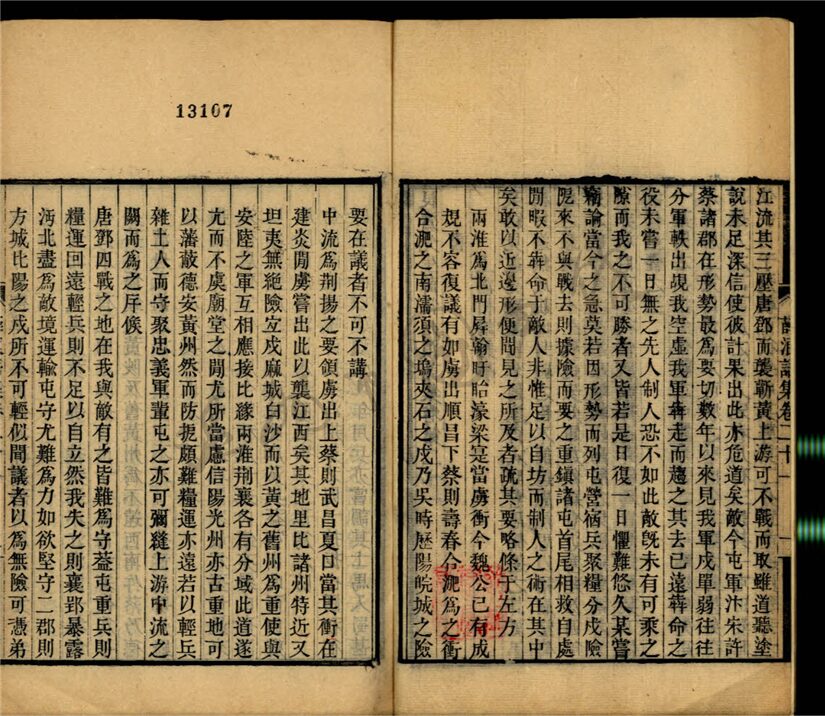 江流其三壓唐鄧而襲蘄黃上游可不戰而取雖道聽塗
說未足深信使彼計果出此亦危道矣敵今屯軍汴宋許
蔡諸郡在形勢最為要切數年以來見我軍戍單弱往往
分軍軼出覘我空虛我軍奔走而趨之其去已遠奔命之
役未嘗一日無之先人制人恐不如此敵旣未有可乘之
隙而我之不可勝者又皆若是日復一日懼難悠久某嘗
竊論當今之急莫若因形勢而列屯營宿兵聚糧分戍險
阨來不與戰去則據險而要之重鎮諸屯首尾相救自處
閒暇不犇命于敵人非惟足以自坊而制人之術在其中
矣敢以近邊形便聞見之所及者疏其要略條于左方
兩淮為北門屛翰盱眙濠梁寔當虜衝今魏公已有成
規不容復議有如虜出順昌下蔡則壽春合淝為之衝
合淝之南濡須之塢夾石之戍乃吳時歷陽皖城之險
要在議者不可不講
中流為荆揚之要領虜出上蔡則武昌夏口當其衝在
建炎閒虜嘗出此以襲江西矣其地里比諸州特近又
坦夷無絕險宐戍麻城白沙而以黃之舊州為重使與
安陸之軍互相應接比緣兩淮荆襄各有分域此道遂
尤而不虞廟堂之閒尤所當慮信陽光州亦古重地可
以藩蔽德安黃州然而防扼頗難糧運亦遠若以輕兵
雜土人而守聚忠義軍輩屯之亦可彌縫上游中流之
闕而為之斥候
唐鄧四戰之地在我與敵有之皆難為守葢屯重兵則
糧運回遠輕兵則不足以自立然我失之則襄郢暴露
沔北盡為敵境運輸屯守尤難為力如欲堅守二郡則
方城比陽之戍所不可輕似聞議者以為無險可憑弟
卷二十一
13107